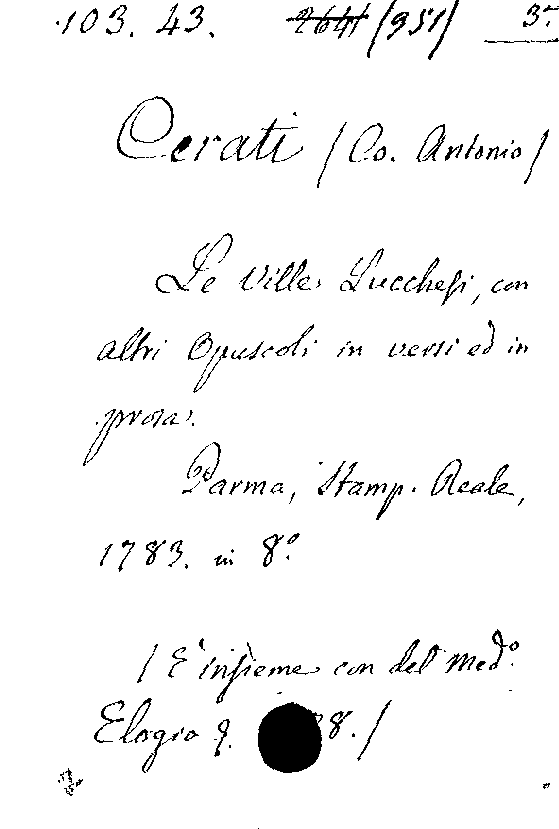 103. 43. 2641 (951) 3.
Cerati / Co. Antonio /
Le Ville Lucchesi, con
altri Opuscoli in versi ed in
prosa.
Parma, Stamp. Reale,
1783. in 8º
/ E' insieme con del medº.
Elogio 8. /